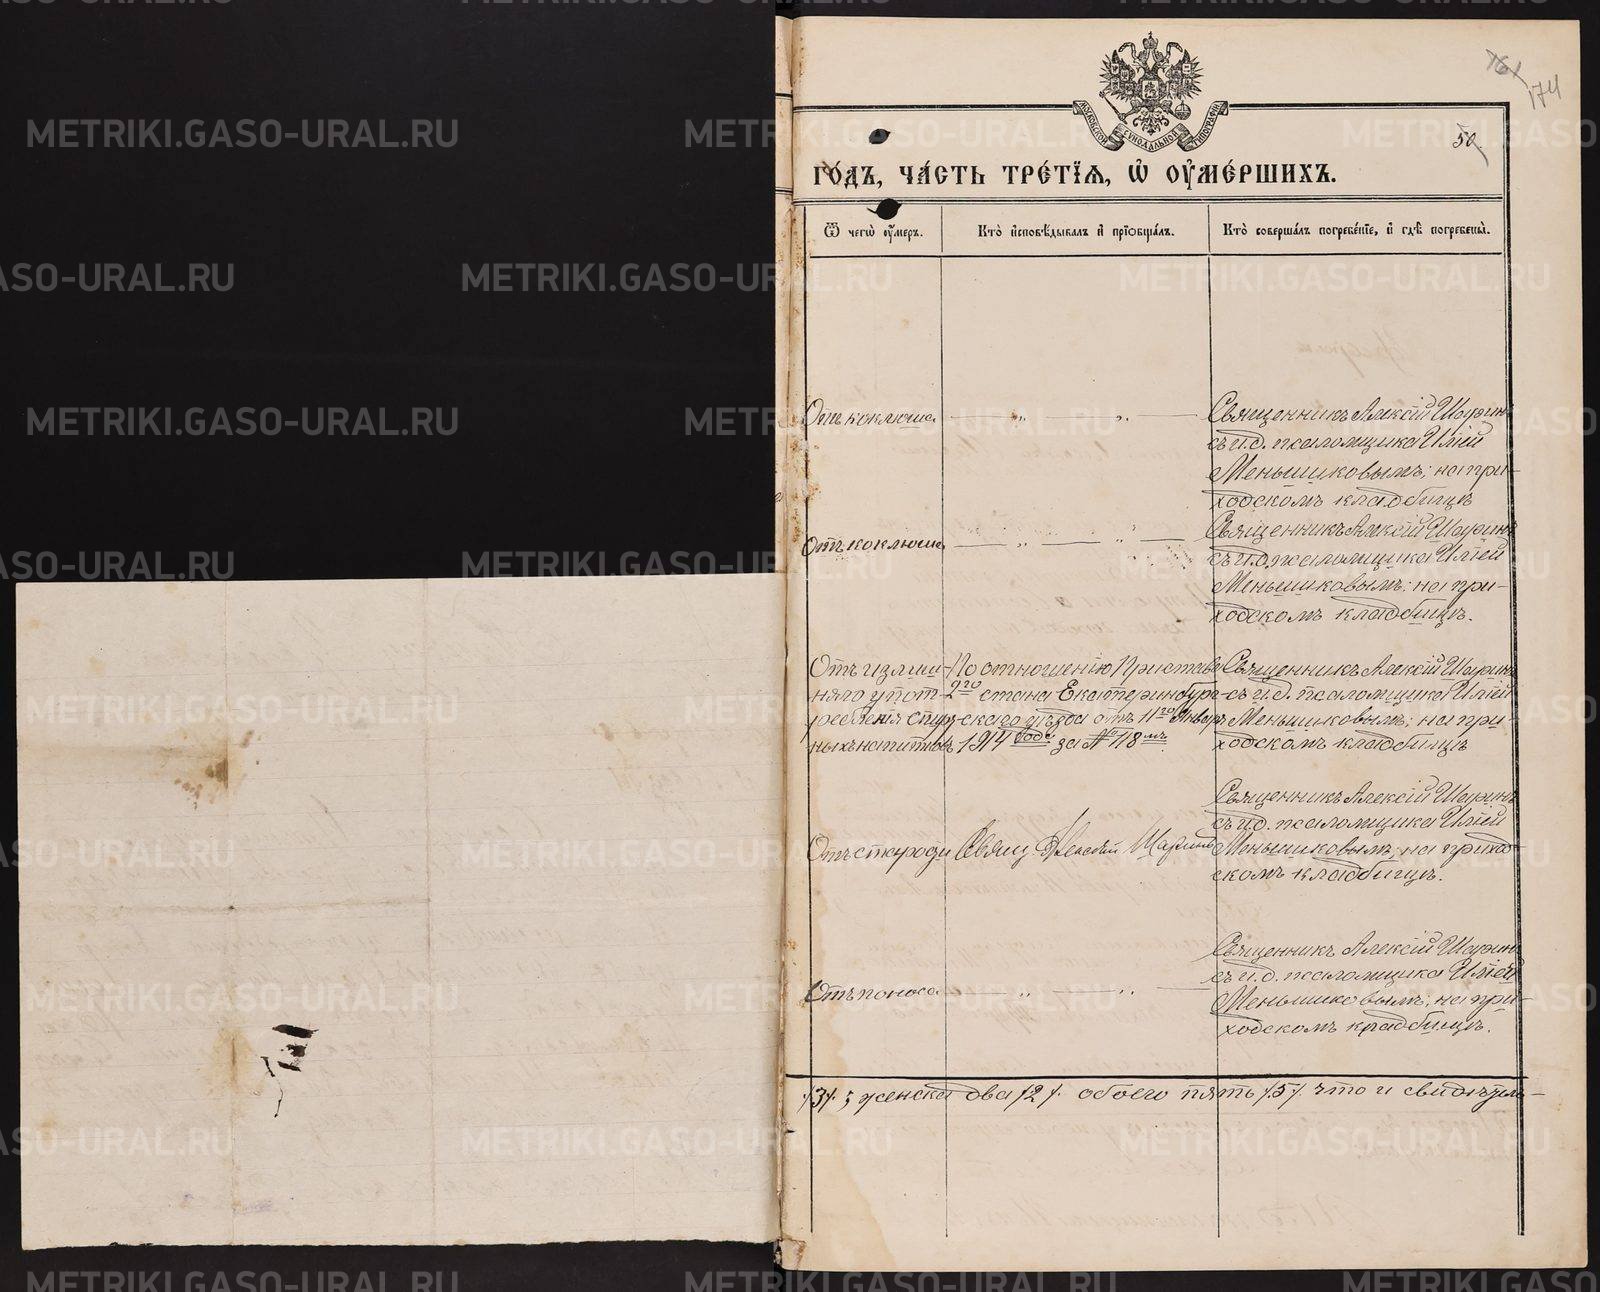 174
50.
МОСКОВСКОЙ СѴНОДАЛЬНОЙ ТИПОГРАФІИ
ГО́ДЪ, ЧА́СТЬ ТРЕ́ТІѦ, Ѽ ОУ҆МЕ́РШИХЪ.
Ѿ чегѡ̀ оу҆́меръ.
Кто̀ и҆сповѣ́дывалъ и҆ прїѻбща́лъ.
Кто̀ соверша́лъ погребе́нїе, и҆ гдѣ̀ погребены̀.
Отъ коклюша
Священникъ Алексій Шаринъ
съ и.д. псаломщика Иліей
Меньшиковымъ; на при-
ходскомъ кладбищѣ
Отъ коклюша
Священникъ Алексій Шаринъ
съ и.д. псаломщика Иліей
Меньшиковымъ; на при-
ходскомъ кладбищѣ.
Отъ излиш-
няго упот-
ребленія спирт-
ныхъ напитковъ
По отношенію Пристава
2го стана Екатеринбург-
скаго уѣзда отъ 11го Января
1914 года за № 118мъ.
Священникъ Алексій Шаринъ
съ и.д. псаломщика Иліей
Меньшиковымъ; на при-
ходскомъ кладбищѣ
Отъ старости
Свящ. Алексій Шаринъ
Священникъ Алексій Шаринъ
съ и.д. псаломщика Иліей
Меньшиковымъ; на приход-
скомъ кладбищѣ.
Отъ поноса
Священникъ Алексій Шаринъ
съ и.д. псаломщика Иліей
Меньшиковымъ; на при-
ходскомъ кладбищѣ.
/3/.; женска два /2/. обоего пять /5/. что и свидѣтель-
METRIKI.GASO-URAL.RU